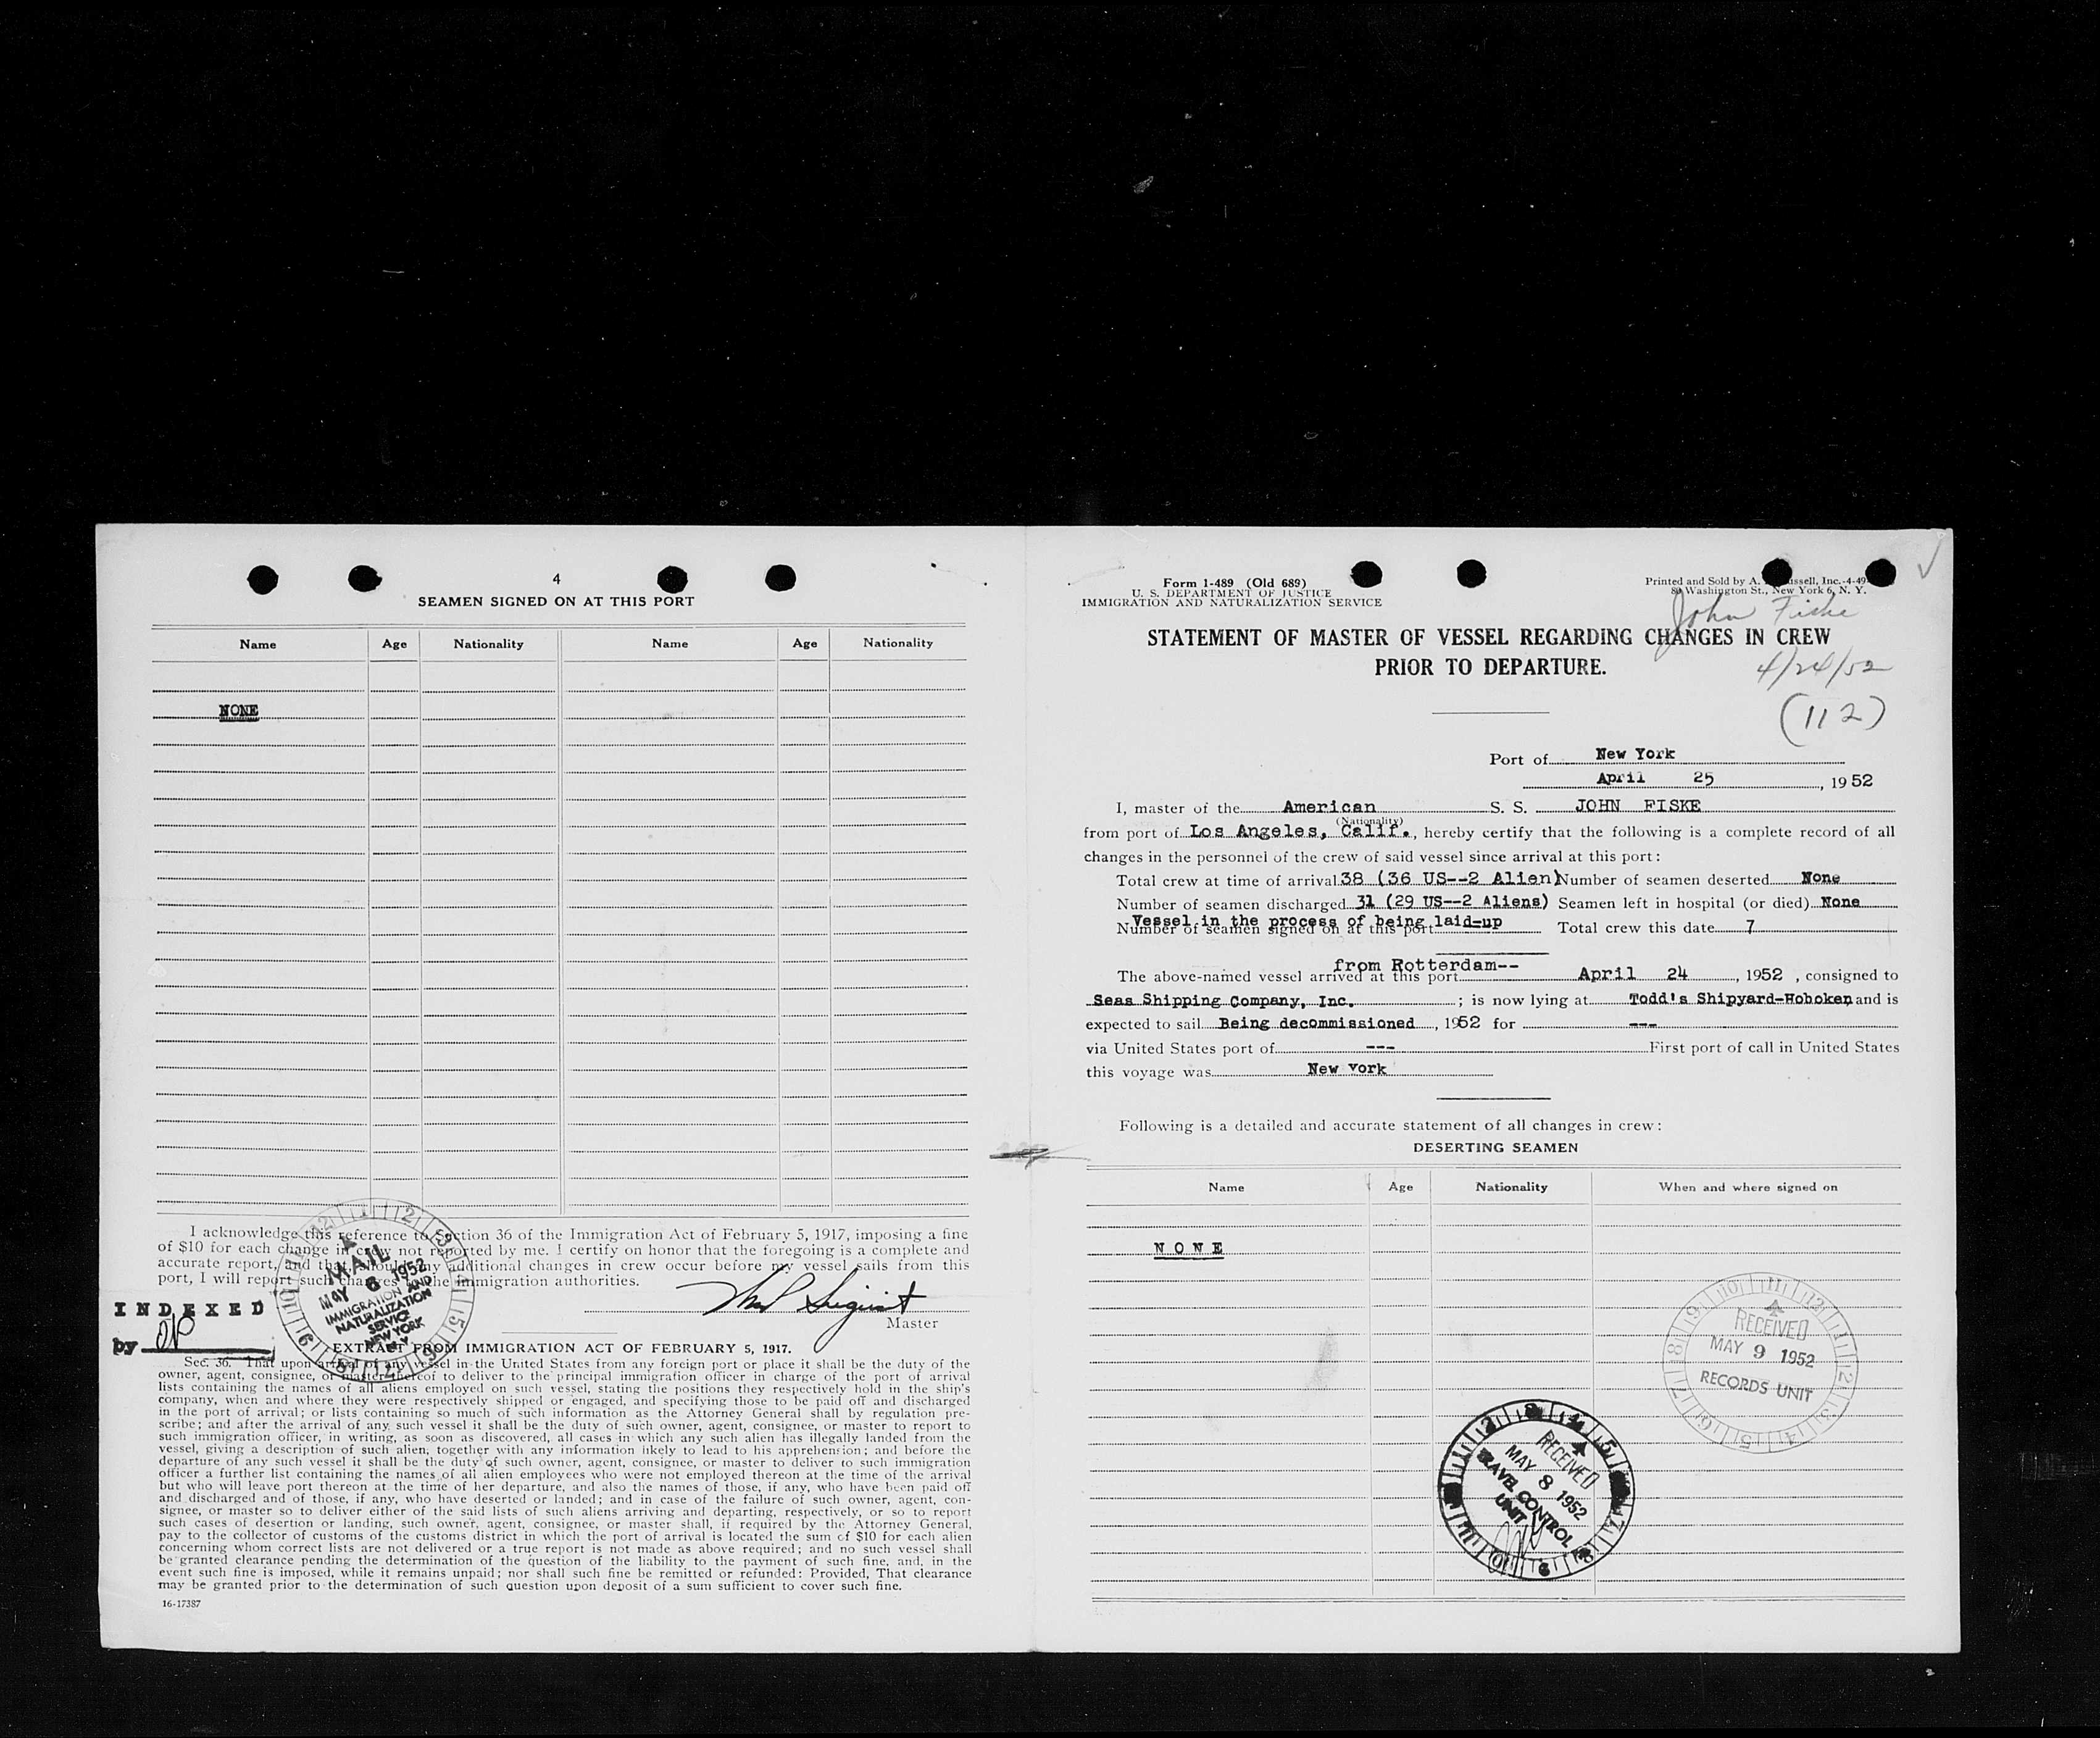 4
SEAMEN SIGNED ON AT THIS PORT
Name Age Nationality Name Age Nationality
NONE
I acknowledge this reference to Section 36 of the Immigration Act of February 5, 1917, imposing a fine
of $10 for each change in crew not reported by me. I certify on honor that the foregoing is a complete and
accurate report, and that, should any additional changes in crew occur before my vessel sails from this
port, I will report such changes to the immigration authorities.
Master
MAIL
MAY 6 1952
IMMIGRATION AND
NATURALIZATION
SERVICE
NEW YORK
N Y
INDEXED
by
EXTRACT FROM IMMIGRATION ACT OF FEBRUARY 5, 1917.
Sec. 36. That upon arrival of any vessel in the United States from any foreign port or place it shall be the duty of the
owner, agent, consignee, or master thereof to deliver to the principal immigration officer in charge of the port of arrival
lists containing the names of all aliens employed on such vessel, stating the positions they respectively hold in the ship's
company, when and where they were respectively shipped or engaged, and specifying those to be paid off and discharged
in the port of arrival; or lists containing so much of such information as the Attorney General shall by regulation pre-
scribe; and after the arrival of any such vessel it shall be the duty of such owner, agent, consignee, or master to report to
such immigration officer, in writing, as soon as discovered, all cases in which any such alien has illegally landed from the
vessel, giving a description of such alien, together with any information likely to lead to his apprehension; and before the
departure of any such vessel it shall be the duty of such owner, agent, consignee, or master to deliver to such immigration
officer a further list containing the names of all alien employees who were not employed thereon at the time of the arrival
but who will leave port thereon at the time of her departure, and also the names of those, if any, who have been paid off
and discharged and of those, if any, who have deserted or landed; and in case of the failure of such owner, agent, con-
signee, or master so to deliver either of the said lists of such aliens arriving and departing, respectively, or so to report
such cases of desertion or landing, such owner, agent, consignee, or master shall, if required by the Attorney General,
pay to the collector of customs of the customs district in which the port of arrival is located the sum of $10 for each alien
concerning whom correct lists are not delivered or a true report is not made as above required; and no such vessel shall
be granted clearance pending the determination of the question of the liability to the payment of such fine, and, in the
event such fine is imposed, while it remains unpaid; nor shall such fine be remitted or refunded: Provided, That clearance
may be granted prior to the determination of such question upon deposit of a sum sufficient to cover such fine.
16-17387
Form 1-489 (Old 689)
U. S. DEPARTMENT OF JUSTICE
IMMIGRATION AND NATURALIZATION SERVICE
Printed and Sold by A. Inc.-4-49
Washington St., New York 6, N. Y.
John Fiske
STATEMENT OF MASTER OF VESSEL REGARDING CHANGES IN CREW
PRIOR TO DEPARTURE.
4/24/52
(112)
Port of New York
April 25, 1952
I, master of the American S. S. JOHN FISKE
(Nationality)
from port of Los Angeles, Calif., hereby certify that the following is a complete record of all
changes in the personnel of the crew of said vessel since arrival at this port:
Total crew at time of arrival 38 (36 US--2 Alien) Number of seamen deserted None
Number of seamen discharged 31 (29 US--2 Aliens) Seamen left in hospital (or died) None
Vessel in the process of being laid-up
Number of seamen signed on at this port Total crew this date 7
from Rotterdam--
The above-named vessel arrived at this port April 24, 1952, consigned to
Seas Shipping Company, Inc. ; is now lying at Todd's Shipyard-Hoboken and is
expected to sail Being decommissioned, 1952 for ---
via United States port of --- First port of call in United States
this voyage was New York
Following is a detailed and accurate statement of all changes in crew:
DESERTING SEAMEN
Name Age Nationality When and where signed on
NONE
RECEIVED
MAY 9 1952
RECORDS UNIT
RECEIVED
MAY 8 1952
TRAVEL CONTROL
UNIT